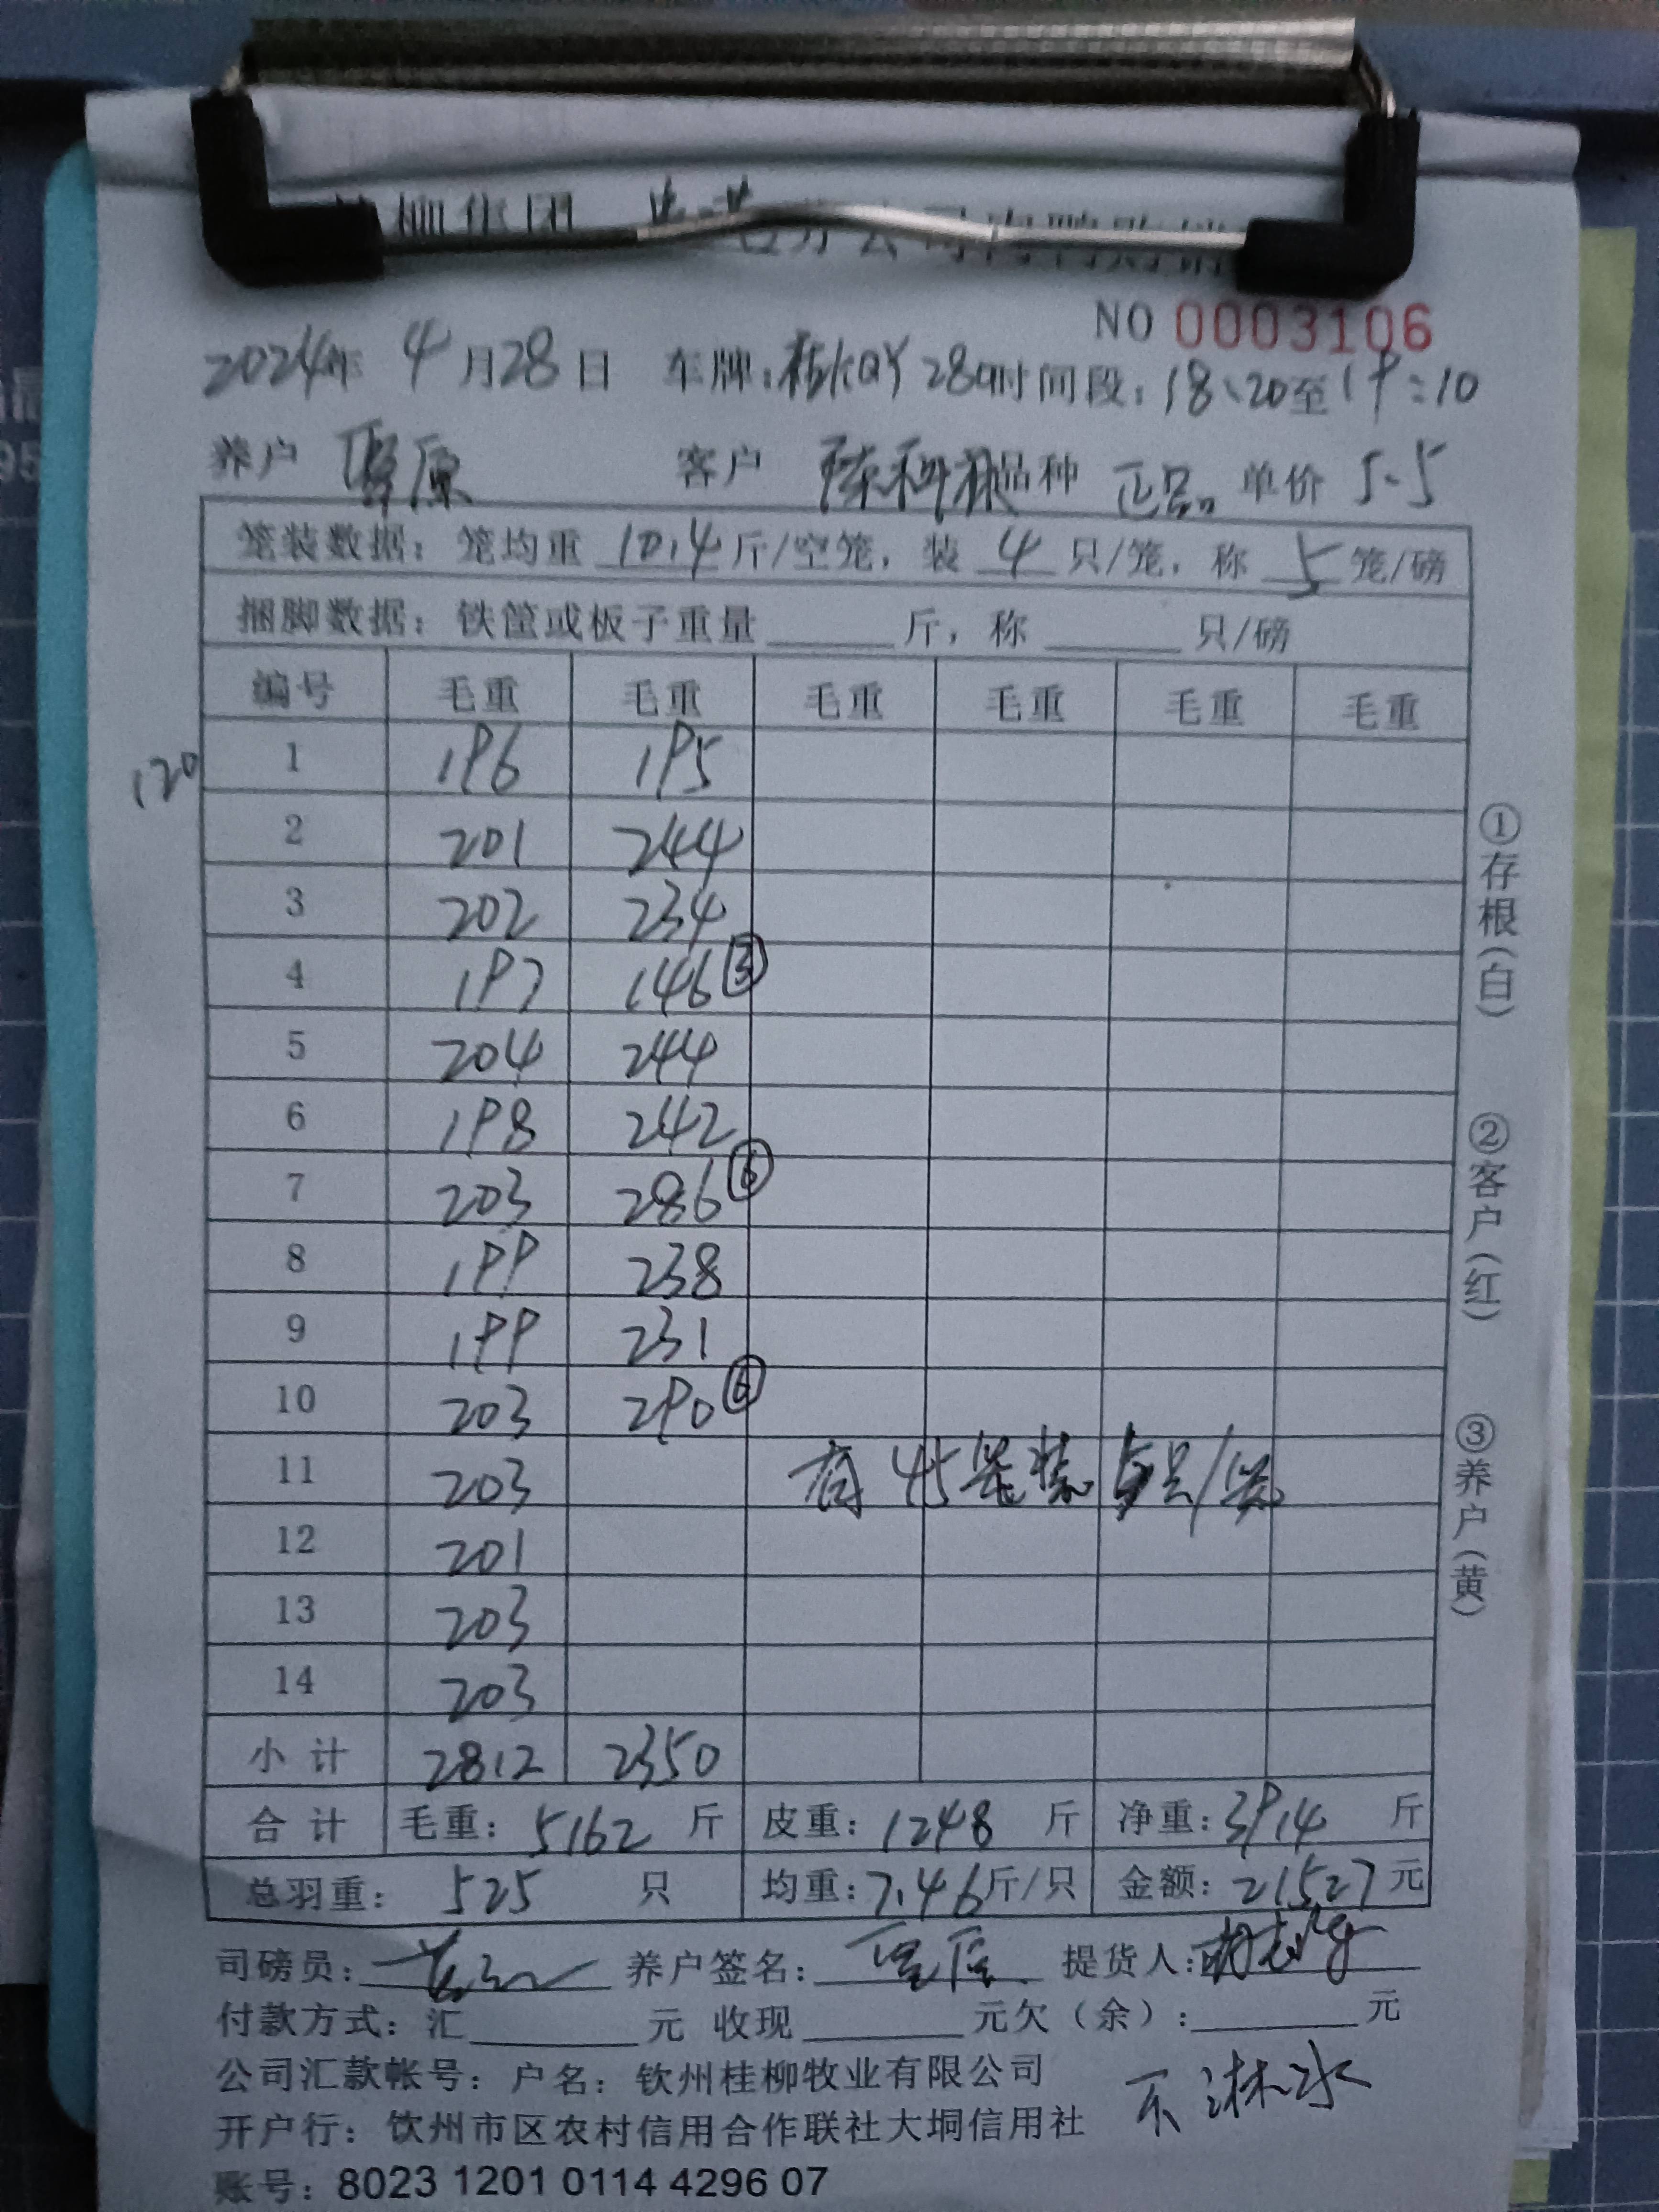 柳集团 分公司肉鸭购销
NO 0003106
2024年 4月28日 车牌:桂KQY280 时间段:18:20至19:10
养户 覃原 客户 陈科 品种 正品 单价 5.5
笼装数据:笼均重 10.4 斤/空笼,装 4 只/笼,称 5 笼/磅
捆脚数据:铁筐或板子重量 斤,称 只/磅
编号 毛重 毛重 毛重 毛重 毛重 毛重
120
1 196 195
2 201 244
3 202 234
4 197 146 ③
5 204 244
6 198 242
7 203 286 ⑥
8 199 238
9 199 231
10 203 290 ⑥
11 203 有45笼装5只/笼
12 201
13 203
14 203
小计 2812 2350
合计 毛重:5162 斤 皮重:1248 斤 净重:3914 斤
总羽重:525 只 均重:7.46斤/只 金额:21527元
司磅员: 养户签名:覃原 提货人:
付款方式:汇 元 收现 元欠(余): 元
公司汇款帐号:户名:钦州桂柳牧业有限公司
不淋水
开户行:钦州市区农村信用合作联社大垌信用社
账号:8023 1201 0114 4296 07
①存根(白)
②客户(红)
③养户(黄)